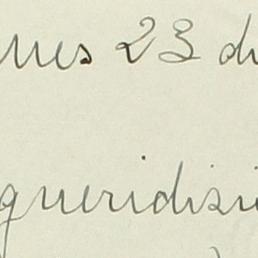 nes 23 d
queridisi